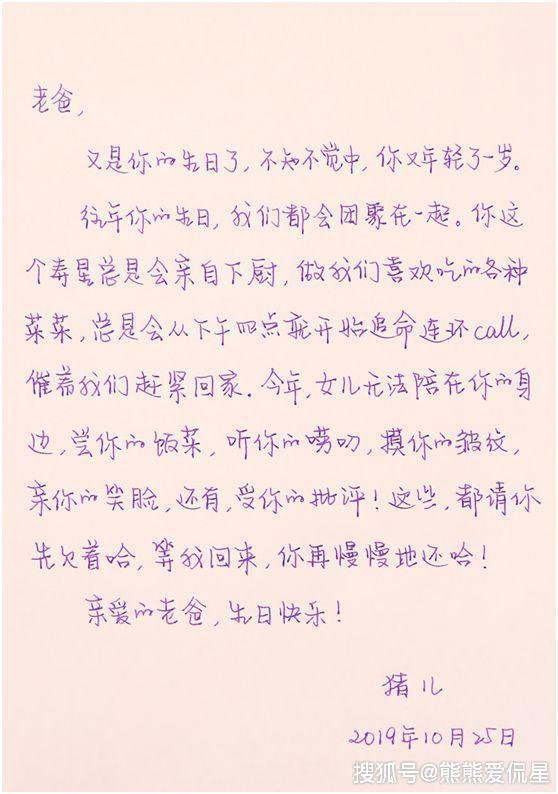 老爸，
又是你的生日了，不知不觉中，你又年轻了一岁。
往年你的生日，我们都会团聚在一起。你这
个寿星总是会亲自下厨，做我们喜欢吃的各种
菜菜，总是会从下午四点就开始追命连环call，
催着我们赶紧回家。今年，女儿无法陪在你的身
边，尝你的饭菜，听你的唠叨，摸你的皱纹，
亲你的笑脸，还有，受你的批评！这些，都请你
先欠着哈，等我回来，你再慢慢地还哈！
亲爱的老爸，生日快乐！
猪儿
2019年10月25日
搜狐号@熊熊爱侃星